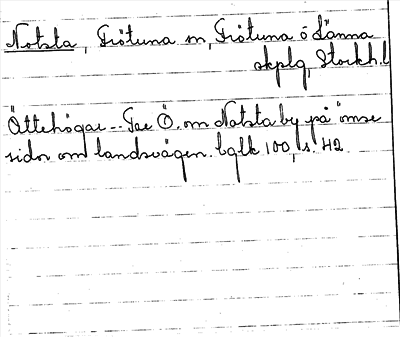 Notsta, Frötuna sn, Frötuna o Länna
skplg, Stockh.l
Ättehögar -- Tae Ö. om Notsta by på ömse
sidor om landsvägen. bglk 100, s. 42.